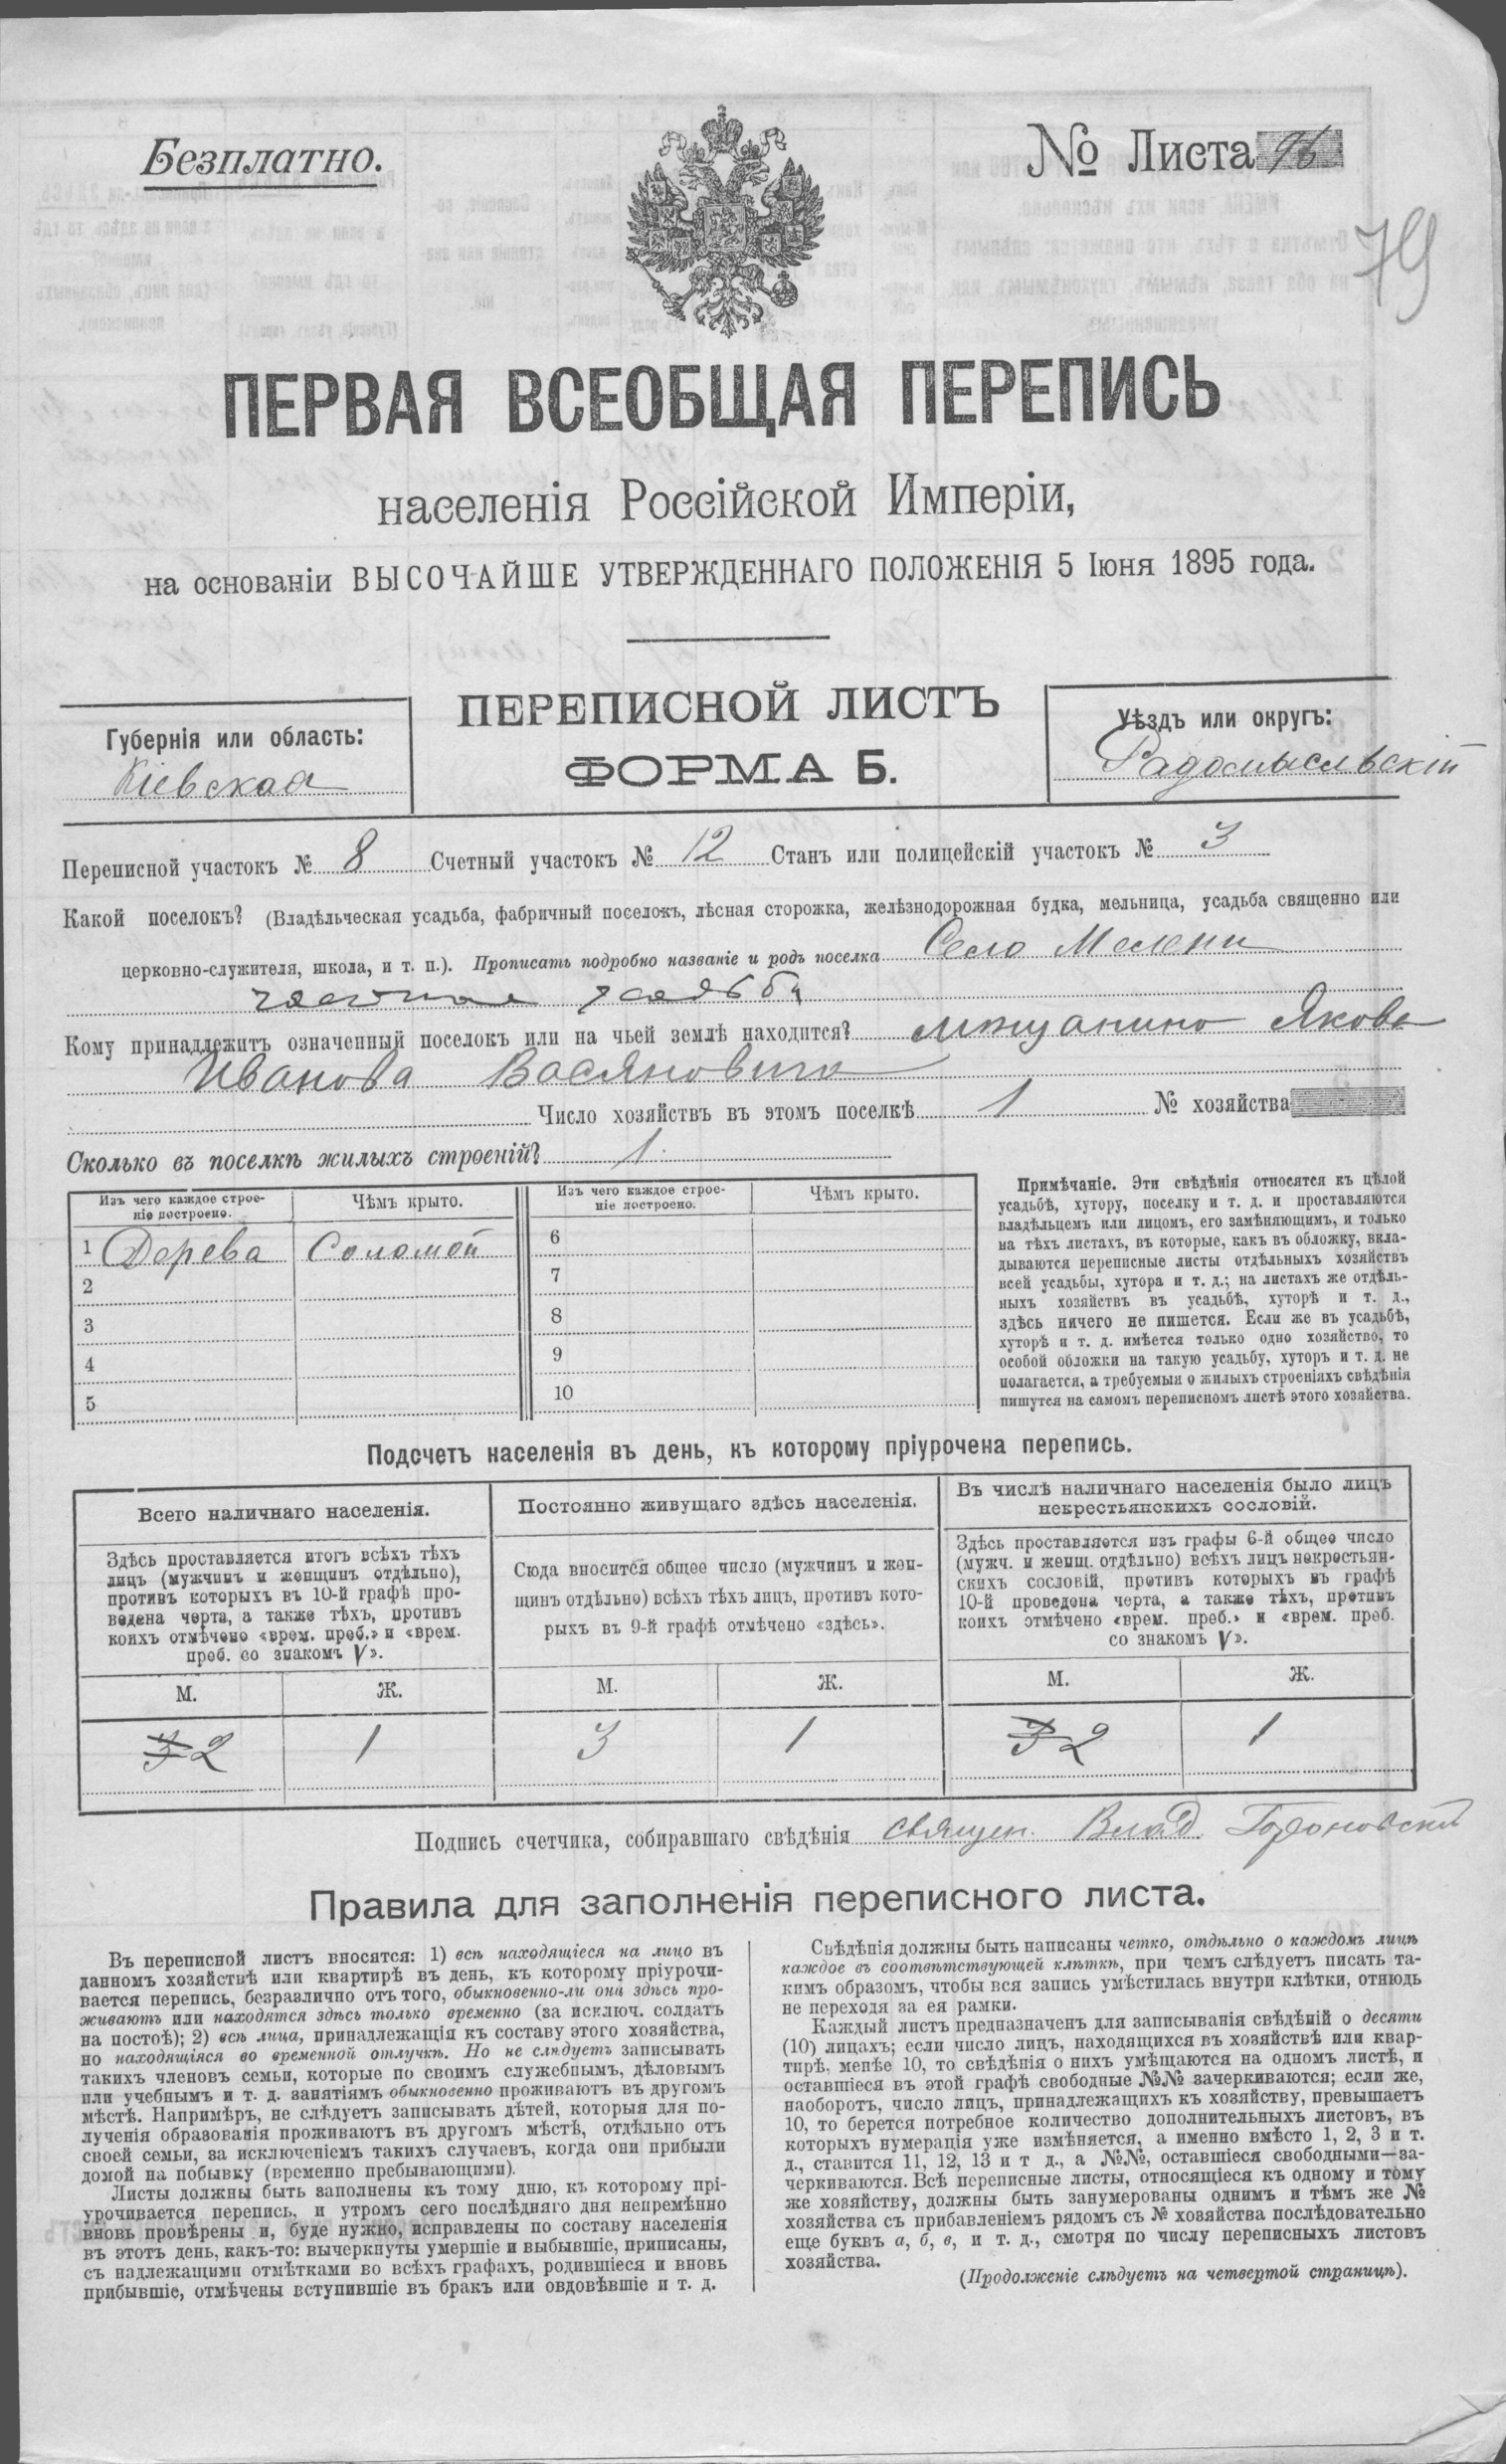 Безплатно.
№ Листа 96
79
ПЕРВАЯ ВСЕОБЩАЯ ПЕРЕПИСЬ
населенія Россійской Имперіи,
на основаніи ВЫСОЧАЙШЕ УТВЕРЖДЕННАГО ПОЛОЖЕНІЯ 5 Іюня 1895 года.
ПЕРЕПИСНОЙ ЛИСТЪ
ФОРМА Б.
Губернія или область:
Кіевская
Уѣздъ или округъ:
Радомысльскій
Переписной участокъ № 8 Счетный участокъ № 12 Станъ или полицейскій участокъ № 3
Какой поселокъ? (Владѣльческая усадьба, фабричный поселокъ, лѣсная сторожка, желѣзнодорожная будка, мельница, усадьба священно или
церковно-служителя, школа, и т. п.). Прописать подробно названіе и родъ поселка Село Мелени
частная усадьба
Кому принадлежитъ означенный поселокъ или на чьей землѣ находится? мѣщанина Якова
Иванова Васяновича
Число хозяйствъ въ этомъ поселкѣ 1 № хозяйства
Сколько въ поселкѣ жилыхъ строеній? 1.
Изъ чего каждое строе-
ніе построено.
Чѣмъ крыто.
Изъ чего каждое строе-
ніе построено.
Чѣмъ крыто.
1 Дерева Соломой
2
3
4
5
6
7
8
9
10
Примѣчаніе. Эти свѣдѣнія относятся къ цѣлой
усадьбѣ, хутору, поселку и т. д. и проставляются
владѣльцемъ или лицомъ, его замѣняющимъ, и только
на тѣхъ листахъ, въ которые, какъ въ обложку, вкла-
дываются переписные листы отдѣльныхъ хозяйствъ
всей усадьбы, хутора и т. д.; на листахъ же отдѣль-
ныхъ хозяйствъ въ усадьбѣ, хуторѣ и т. д.,
здѣсь ничего не пишется. Если же въ усадьбѣ,
хуторѣ и т. д. имѣется только одно хозяйство, то
особой обложки на такую усадьбу, хуторъ и т. д. не
полагается, а требуемыя о жилыхъ строеніяхъ свѣдѣнія
пишутся на самомъ переписномъ листѣ этого хозяйства.
Подсчетъ населенія въ день, къ которому пріурочена перепись.
Всего наличнаго населенія.
Здѣсь проставляется итогъ всѣхъ тѣхъ
лицъ (мужчинъ и женщинъ отдѣльно),
противъ которыхъ въ 10-й графѣ про-
ведена черта, а также тѣхъ, противъ
коихъ отмѣчено «врем. преб.» и «врем.
преб. со знакомъ V».
М. Ж.
3 2 1
Постоянно живущаго здѣсь населенія.
Сюда вносится общее число (мужчинъ и жен-
щинъ отдѣльно) всѣхъ тѣхъ лицъ, противъ кото-
рыхъ въ 9-й графѣ отмѣчено «здѣсь».
М. Ж.
3 1
Въ числѣ наличнаго населенія было лицъ
некрестьянскихъ сословій.
Здѣсь проставляется изъ графы 6-й общее число
(мужч. и женщ. отдѣльно) всѣхъ лицъ некрестьян-
скихъ сословій, противъ которыхъ въ графѣ
10-й проведена черта, а также тѣхъ, противъ
коихъ отмѣчено «врем. преб.» и «врем. преб.
со знакомъ V».
М. Ж.
3 2 1
Подпись счетчика, собиравшаго свѣдѣнія священ. Влад.
Правила для заполненія переписного листа.
Въ переписной листъ вносятся: 1) всѣ находящіеся на лицо въ
данномъ хозяйствѣ или квартирѣ въ день, къ которому пріурочи-
вается перепись, безразлично отъ того, обыкновенно-ли они здѣсь про-
живаютъ или находятся здѣсь только временно (за исключ. солдатъ
на постоѣ); 2) всѣ лица, принадлежащія къ составу этого хозяйства,
но находящіяся во временной отлучкѣ. Но не слѣдуетъ записывать
такихъ членовъ семьи, которые по своимъ служебнымъ, дѣловымъ
или учебнымъ и т. д. занятіямъ обыкновенно проживаютъ въ другомъ
мѣстѣ. Напримѣръ, не слѣдуетъ записывать дѣтей, которыя для по-
лученія образованія проживаютъ въ другомъ мѣстѣ, отдѣльно отъ
своей семьи, за исключеніемъ такихъ случаевъ, когда они прибыли
домой на побывку (временно пребывающими).
Листы должны быть заполнены къ тому дню, къ которому прі-
урочивается перепись, и утромъ сего послѣдняго дня непремѣнно
вновь провѣрены и, буде нужно, исправлены по составу населенія
въ этотъ день, какъ-то: вычеркнуты умершіе и выбывшіе, приписаны,
съ надлежащими отмѣтками во всѣхъ графахъ, родившіеся и вновь
прибывшіе, отмѣчены вступившіе въ бракъ или овдовѣвшіе и т. д.
Свѣдѣнія должны быть написаны четко, отдѣльно о каждомъ лицѣ
каждое въ соотвѣтствующей клѣткѣ, при чемъ слѣдуетъ писать та-
кимъ образомъ, чтобы вся запись умѣстилась внутри клѣтки, отнюдь
не переходя за ея рамки.
Каждый листъ предназначенъ для записыванія свѣдѣній о десяти
(10) лицахъ; если число лицъ, находящихся въ хозяйствѣ или квар-
тирѣ, менѣе 10, то свѣдѣнія о нихъ умѣщаются на одномъ листѣ, и
оставшіеся въ этой графѣ свободные №№ зачеркиваются; если же,
наоборотъ, число лицъ, принадлежащихъ къ хозяйству, превышаетъ
10, то берется потребное количество дополнительныхъ листовъ, въ
которыхъ нумерація уже измѣняется, а именно вмѣсто 1, 2, 3 и т.
д., ставится 11, 12, 13 и т д., а №№, оставшіеся свободными—за-
черкиваются. Всѣ переписные листы, относящіеся къ одному и тому
же хозяйству, должны быть занумерованы однимъ и тѣмъ же №
хозяйства съ прибавленіемъ рядомъ съ № хозяйства послѣдовательно
еще буквъ а, б, в, и т. д., смотря по числу переписныхъ листовъ
хозяйства.
(Продолженіе слѣдуетъ на четвертой страницѣ).